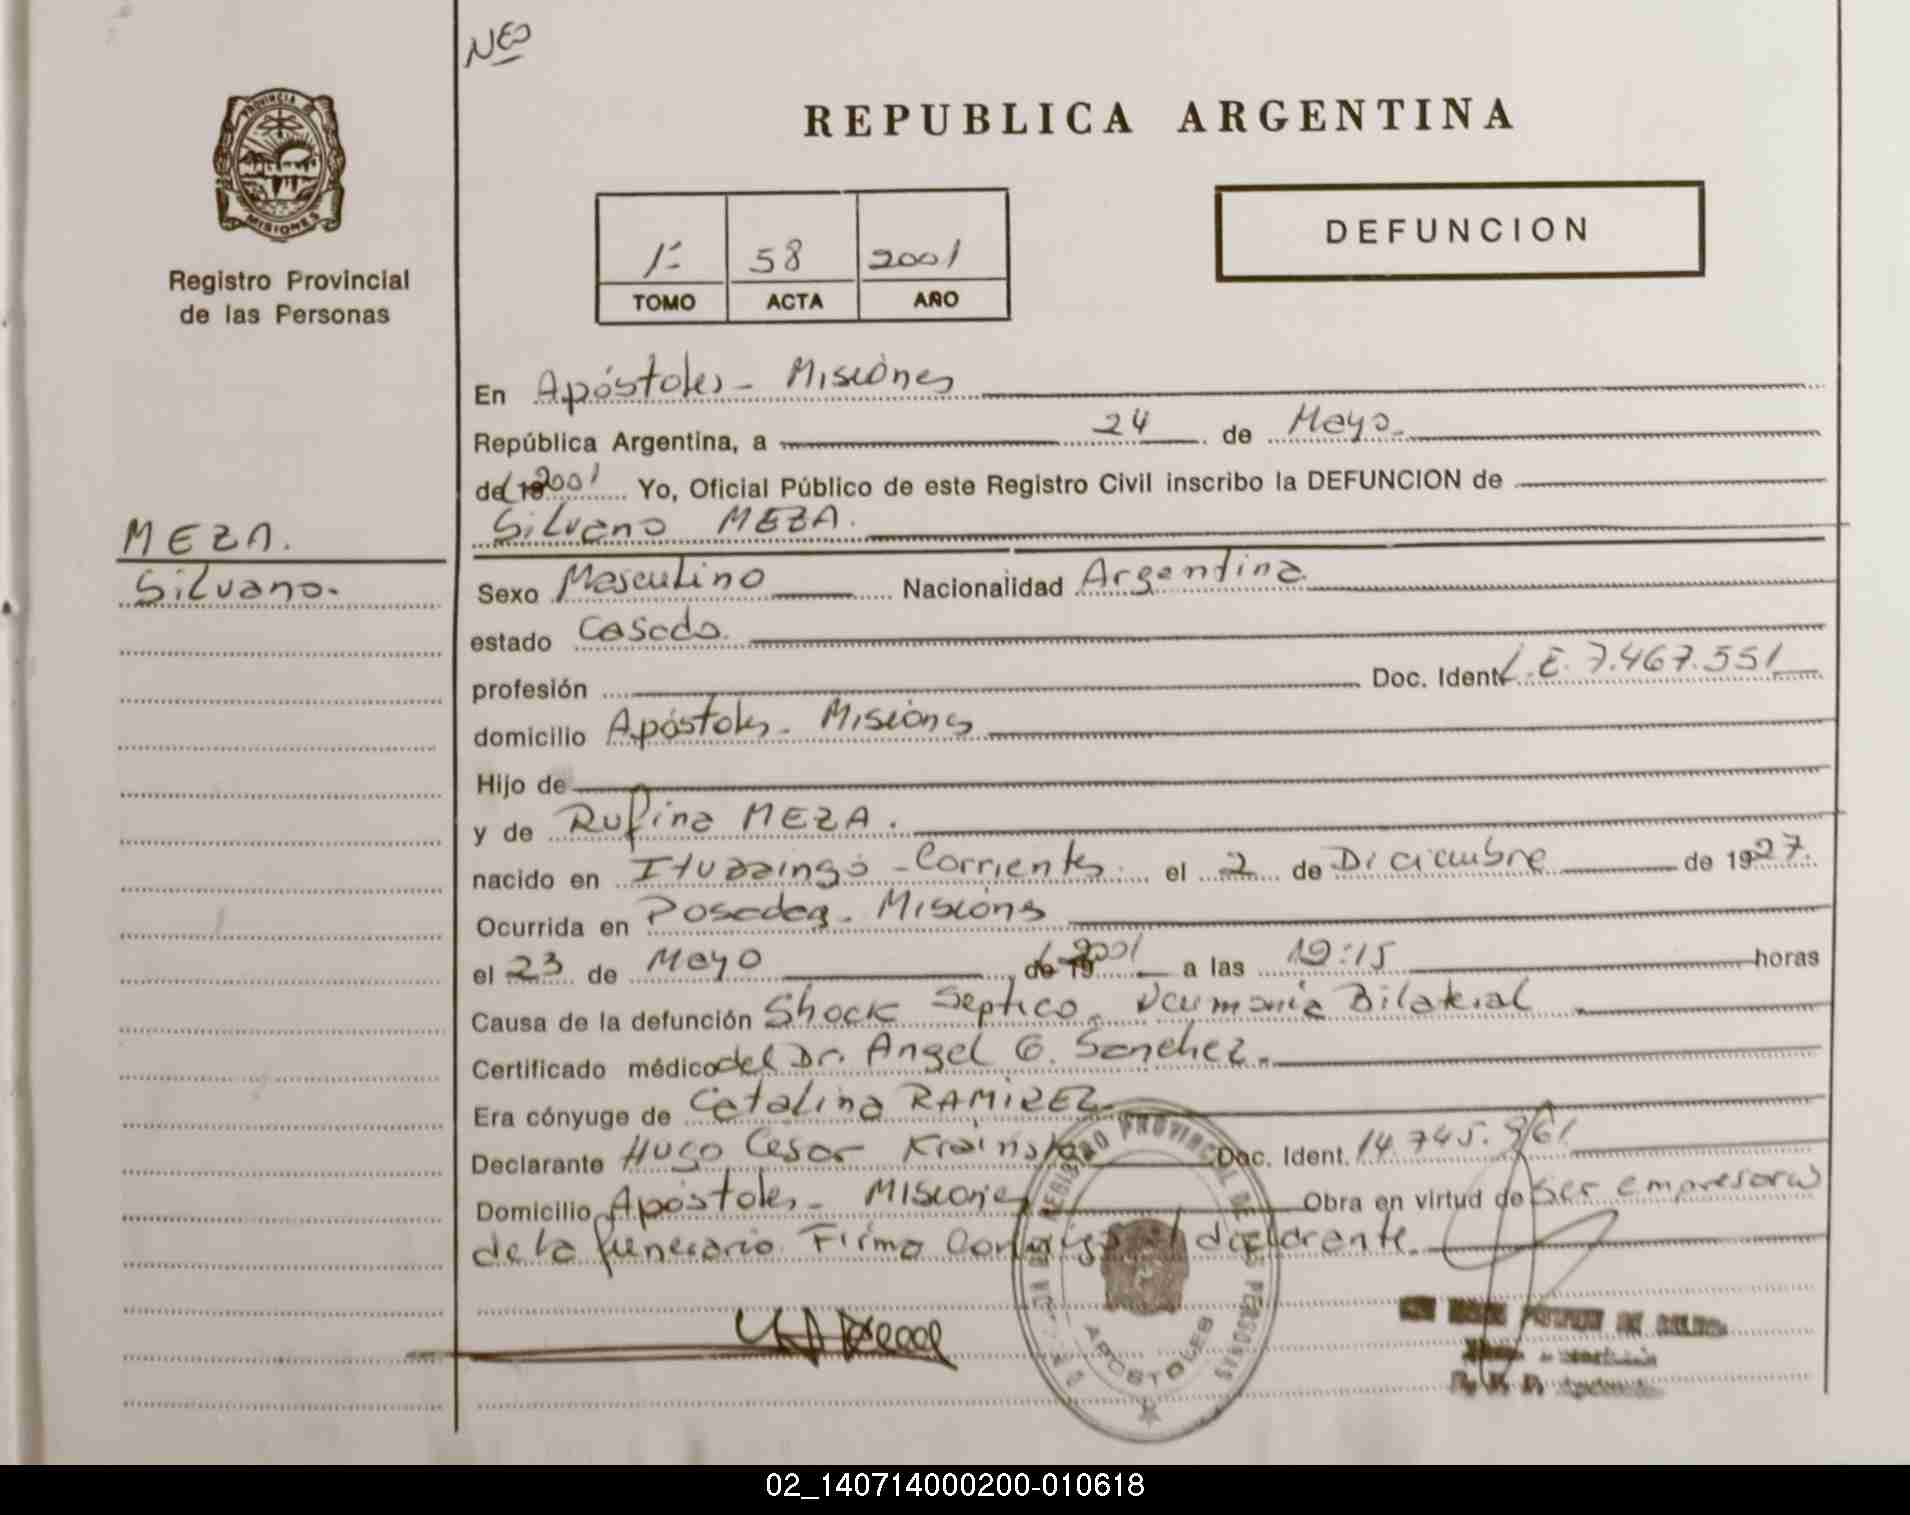 NEO
PROVINCIA DE
MISIONES
Registro Provincial
de las Personas
REPUBLICA ARGENTINA
DEFUNCION
1º 58 2001
TOMO ACTA AÑO
En Apóstoles - Misiones
República Argentina, a 24 de Mayo.
del 19 2001 Yo, Oficial Público de este Registro Civil inscribo la DEFUNCION de
Silvano MEZA.
MEZA.
Silvano.
Sexo Masculino Nacionalidad Argentina
estado Casado.
profesión Doc. Ident. L.E. 7.467.551
domicilio Apóstoles - Misiones
Hijo de
y de Rufina MEZA.
nacido en Ituzaingó - Corrientes. el 2 de Diciembre de 1927.
Ocurrida en Posadas - Misiones
el 23 de Mayo de 19 2001 a las 19:15 horas
Causa de la defunción Shock Septico - Neumonia Bilateral
Certificado médico del Dr. Angel G. Sanchez.
Era cónyuge de Catalina RAMIREZ
Declarante Hugo Cesar Doc. Ident. 14.745.961
Domicilio Apóstoles - Misiones Obra en virtud de ser empresario
de la funeraria. Firma Conmigo el declarante.
REGISTRO PROVINCIAL DE LAS PERSONAS
APOSTOLES
02_140714000200-010618